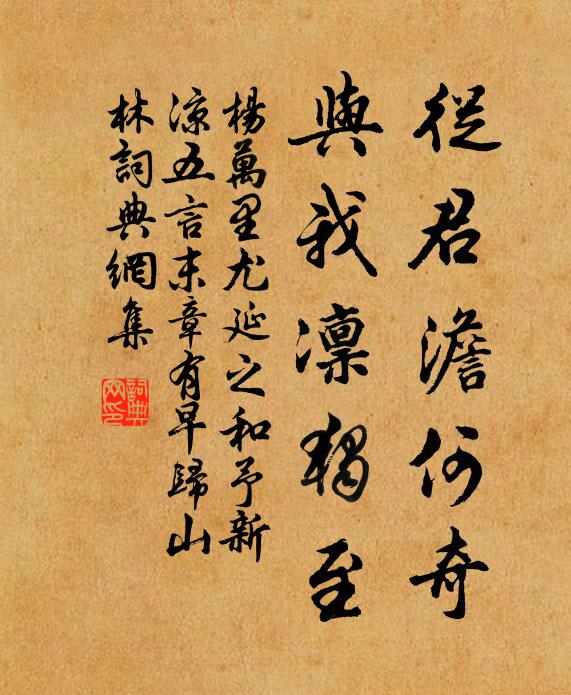 從君澹何奇
與我凜獨至
楊萬里尤延之和予新
涼五言末章有早歸山
林詞典網集
詞典
網印